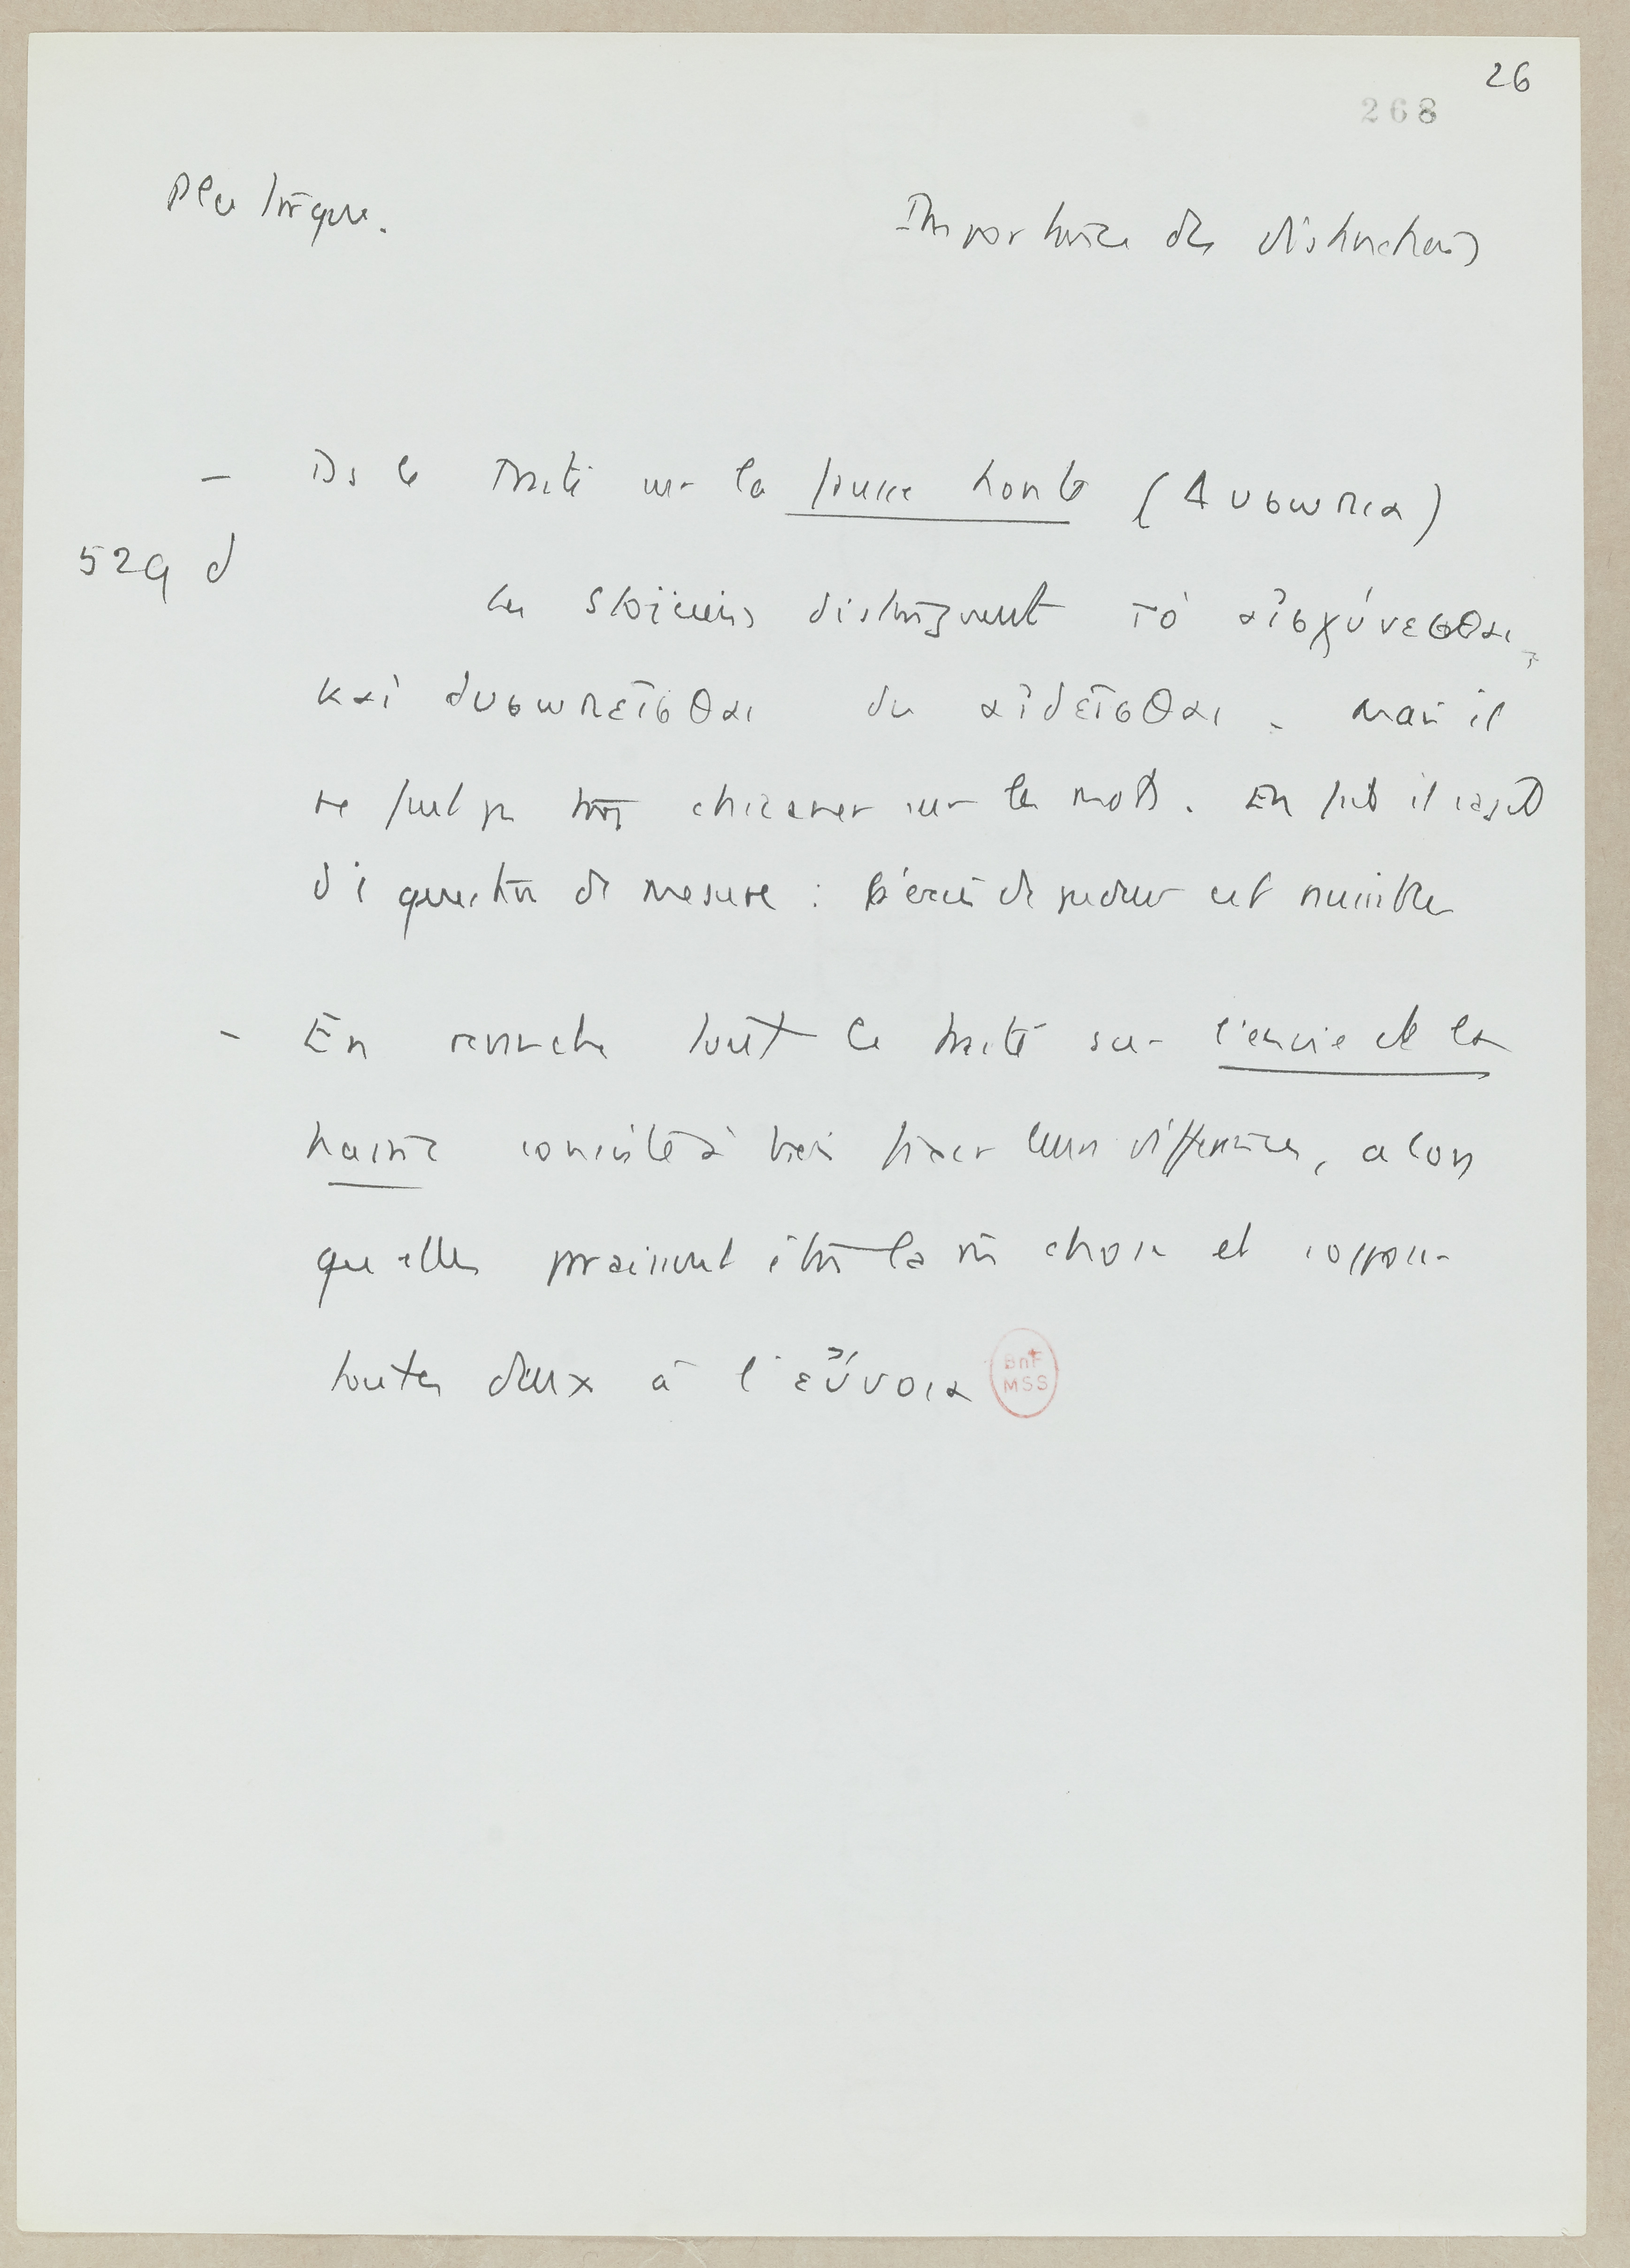 26
268
Plutarque.
Importance des distinctions
– Ds le Traité sur la fausse honte (Δυσωπια)
529 d
les Stoïciens distinguent τὸ αἰσχύνεσθαι,
καὶ δυσωπεῖσθαι du αἰδεῖσθαι. Mais il
ne faut pas trop chicaner sur les mots. En fait il s'agit
d'1 question de mesure : l'excès de pudeur est nuisible
– En revanche tout le traité sur l'envie et la
haine consiste à bien fixer leurs différences, alors
qu'elles paraissent être la m̂ chose et s'opposer
toutes deux à l'εὔνοια
BnF
MSS